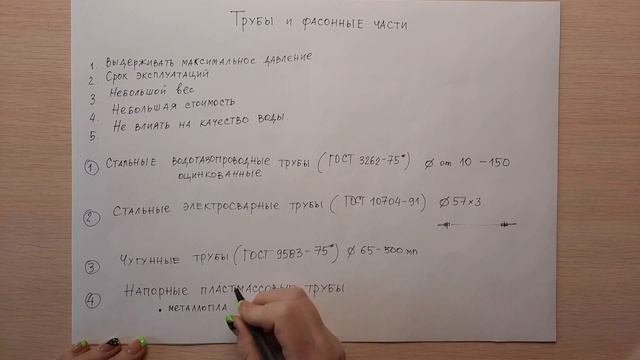 Трубы и фасонные части
1. Выдерживать максимальное давление
2. Срок эксплуатаций
3. Небольшой вес
4. Небольшая стоимость
5. Не влиять на качество воды.
1 Стальные водогазопроводные трубы (ГОСТ 3262-75*) ∅ от 10 - 150
оцинкованные
2. Стальные электросварные трубы (ГОСТ 10704-91) ∅ 57×3.
3 Чугунные трубы (ГОСТ 9583-75*) ∅ 65-300 мм
4 Напорные пластмассовые трубы
• металлопла